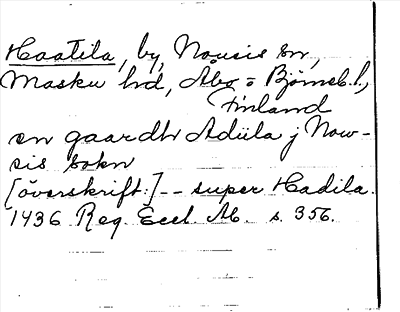 Haatila, by, Nousis sn,
Masku hd, Åbo o Björneb. l.,
Finland
en gaardh Adiila j Now-
sis sokn
[överskrift:] -- super Hadila.
1436 Reg. Eccl. Ab. s. 356.